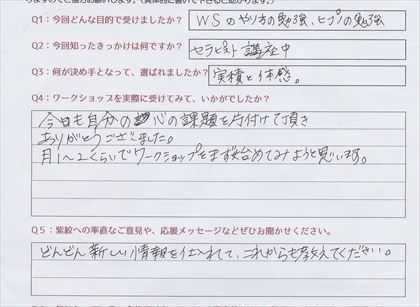 Q1：今回どんな目的で受けましたか？ WSのやり方の勉強、ヒプノの勉強
Q2：今回知ったきっかけは何ですか？ セラピスト講座中
Q3：何が決め手となって、選ばれましたか？ 実積と体感。
Q4：ワークショップを実際に受けてみて、いかがでしたか？
今日も自分の心の課題を片付けて頂き
ありがとうございました。
月1〜2くらいでワークショップをまず始めてみようと思います。
Q5：紫紋への率直なご意見や、応援メッセージなどぜひお聞かせください。
どんどん新しい情報を仕入れて、これからも教えてください。